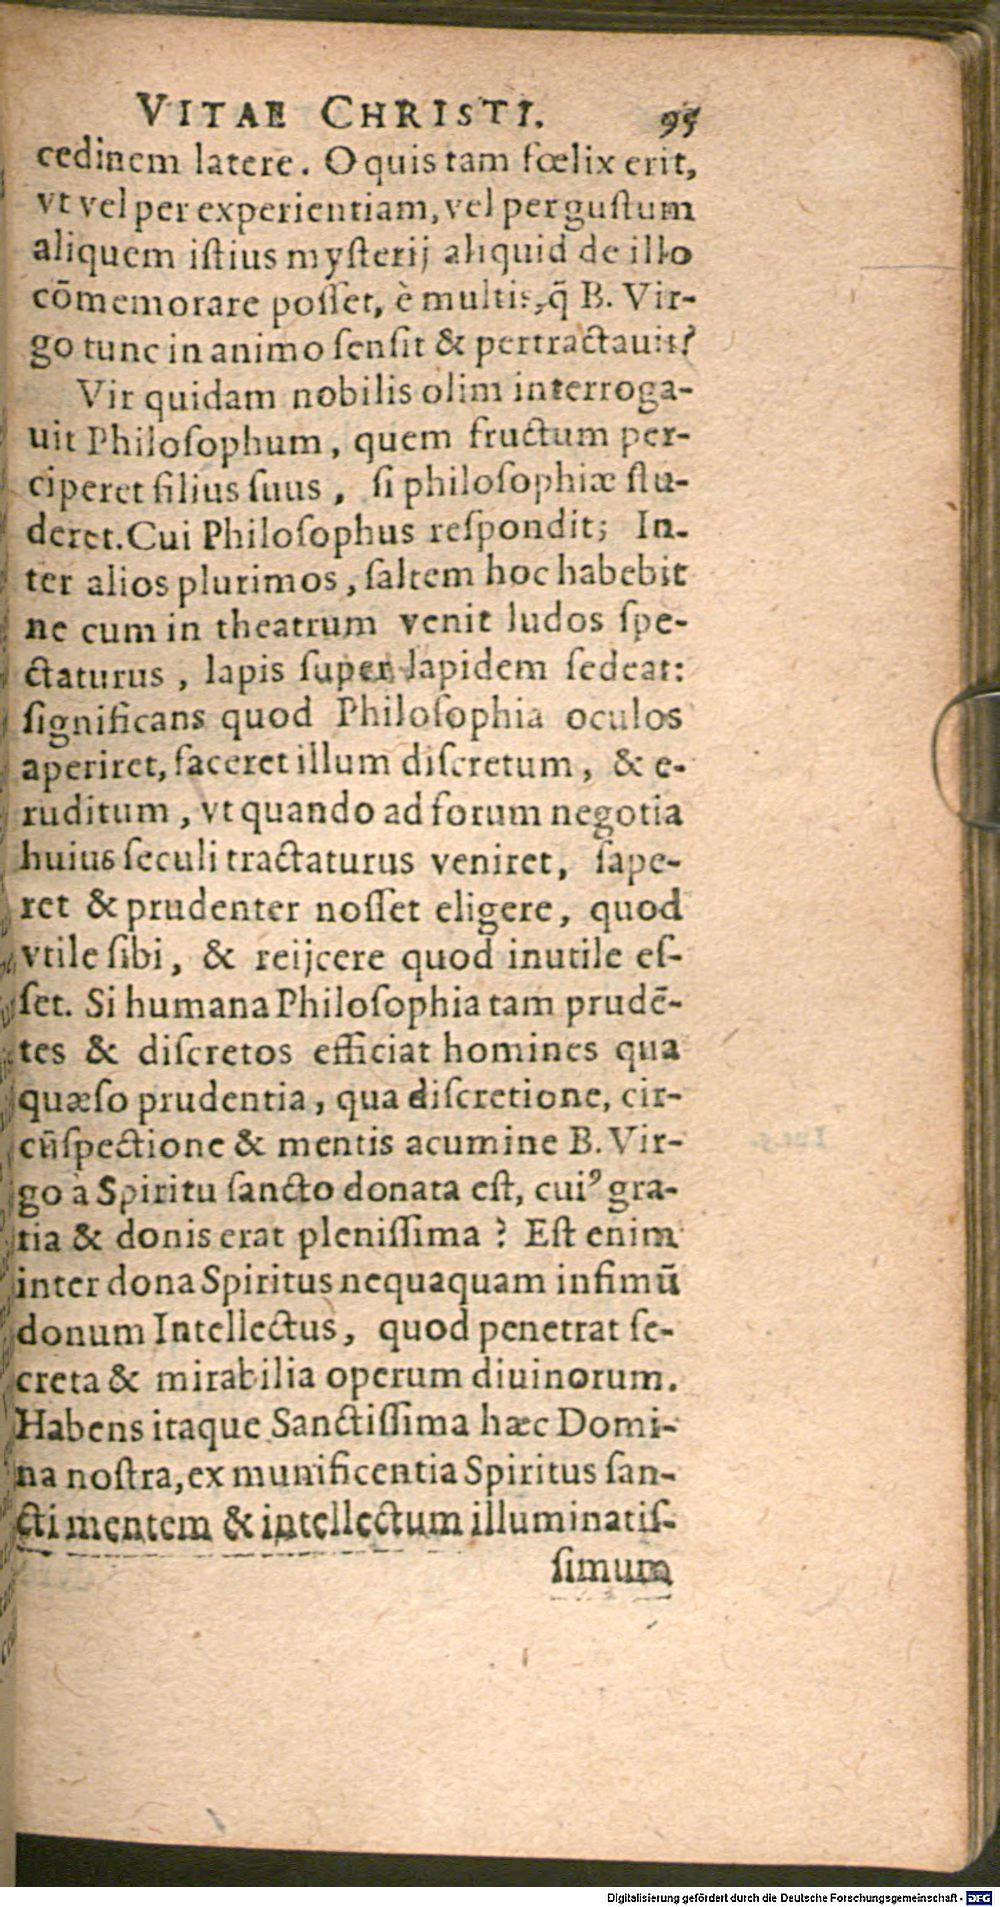 VITAE CHRISTI. 95
cedinem latere. O quis tam fœlix erit,
vt vel per experientiam, vel per gustum
aliquem istius mysterij aliquid de illo
cōmemorare posset, è multis, q̄ B. Vir-
go tunc in animo sensit & pertractauit?
Vir quidam nobilis olim interroga-
uit Philosophum, quem fructum per-
ciperet filius suus, si philosophiæ stu-
deret. Cui Philosophus respondit; In-
ter alios plurimos, saltem hoc habebit
ne cum in theatrum venit ludos spe-
ctaturus, lapis super lapidem sedeat:
significans quod Philosophia oculos
aperiret, faceret illum discretum, & e-
ruditum, vt quando ad forum negotia
huius seculi tractaturus veniret, sape-
ret & prudenter nosset eligere, quod
vtile sibi, & reijcere quod inutile es-
set. Si humana Philosophia tam prudē-
tes & discretos efficiat homines qua
quæso prudentia, qua discretione, cir-
cūspectione & mentis acumine B. Vir-
go à Spiritu sancto donata est, cuiꝰ gra-
tia & donis erat plenissima? Est enim
inter dona Spiritus nequaquam infimū
donum Intellectus, quod penetrat se-
creta & mirabilia operum diuinorum.
Habens itaque Sanctissima hæc Domi-
na nostra, ex munificentia Spiritus san-
cti mentem & intellectum illuminatis-
simum
Digitalisierung gefördert durch die Deutsche Forschungsgemeinschaft - DFG